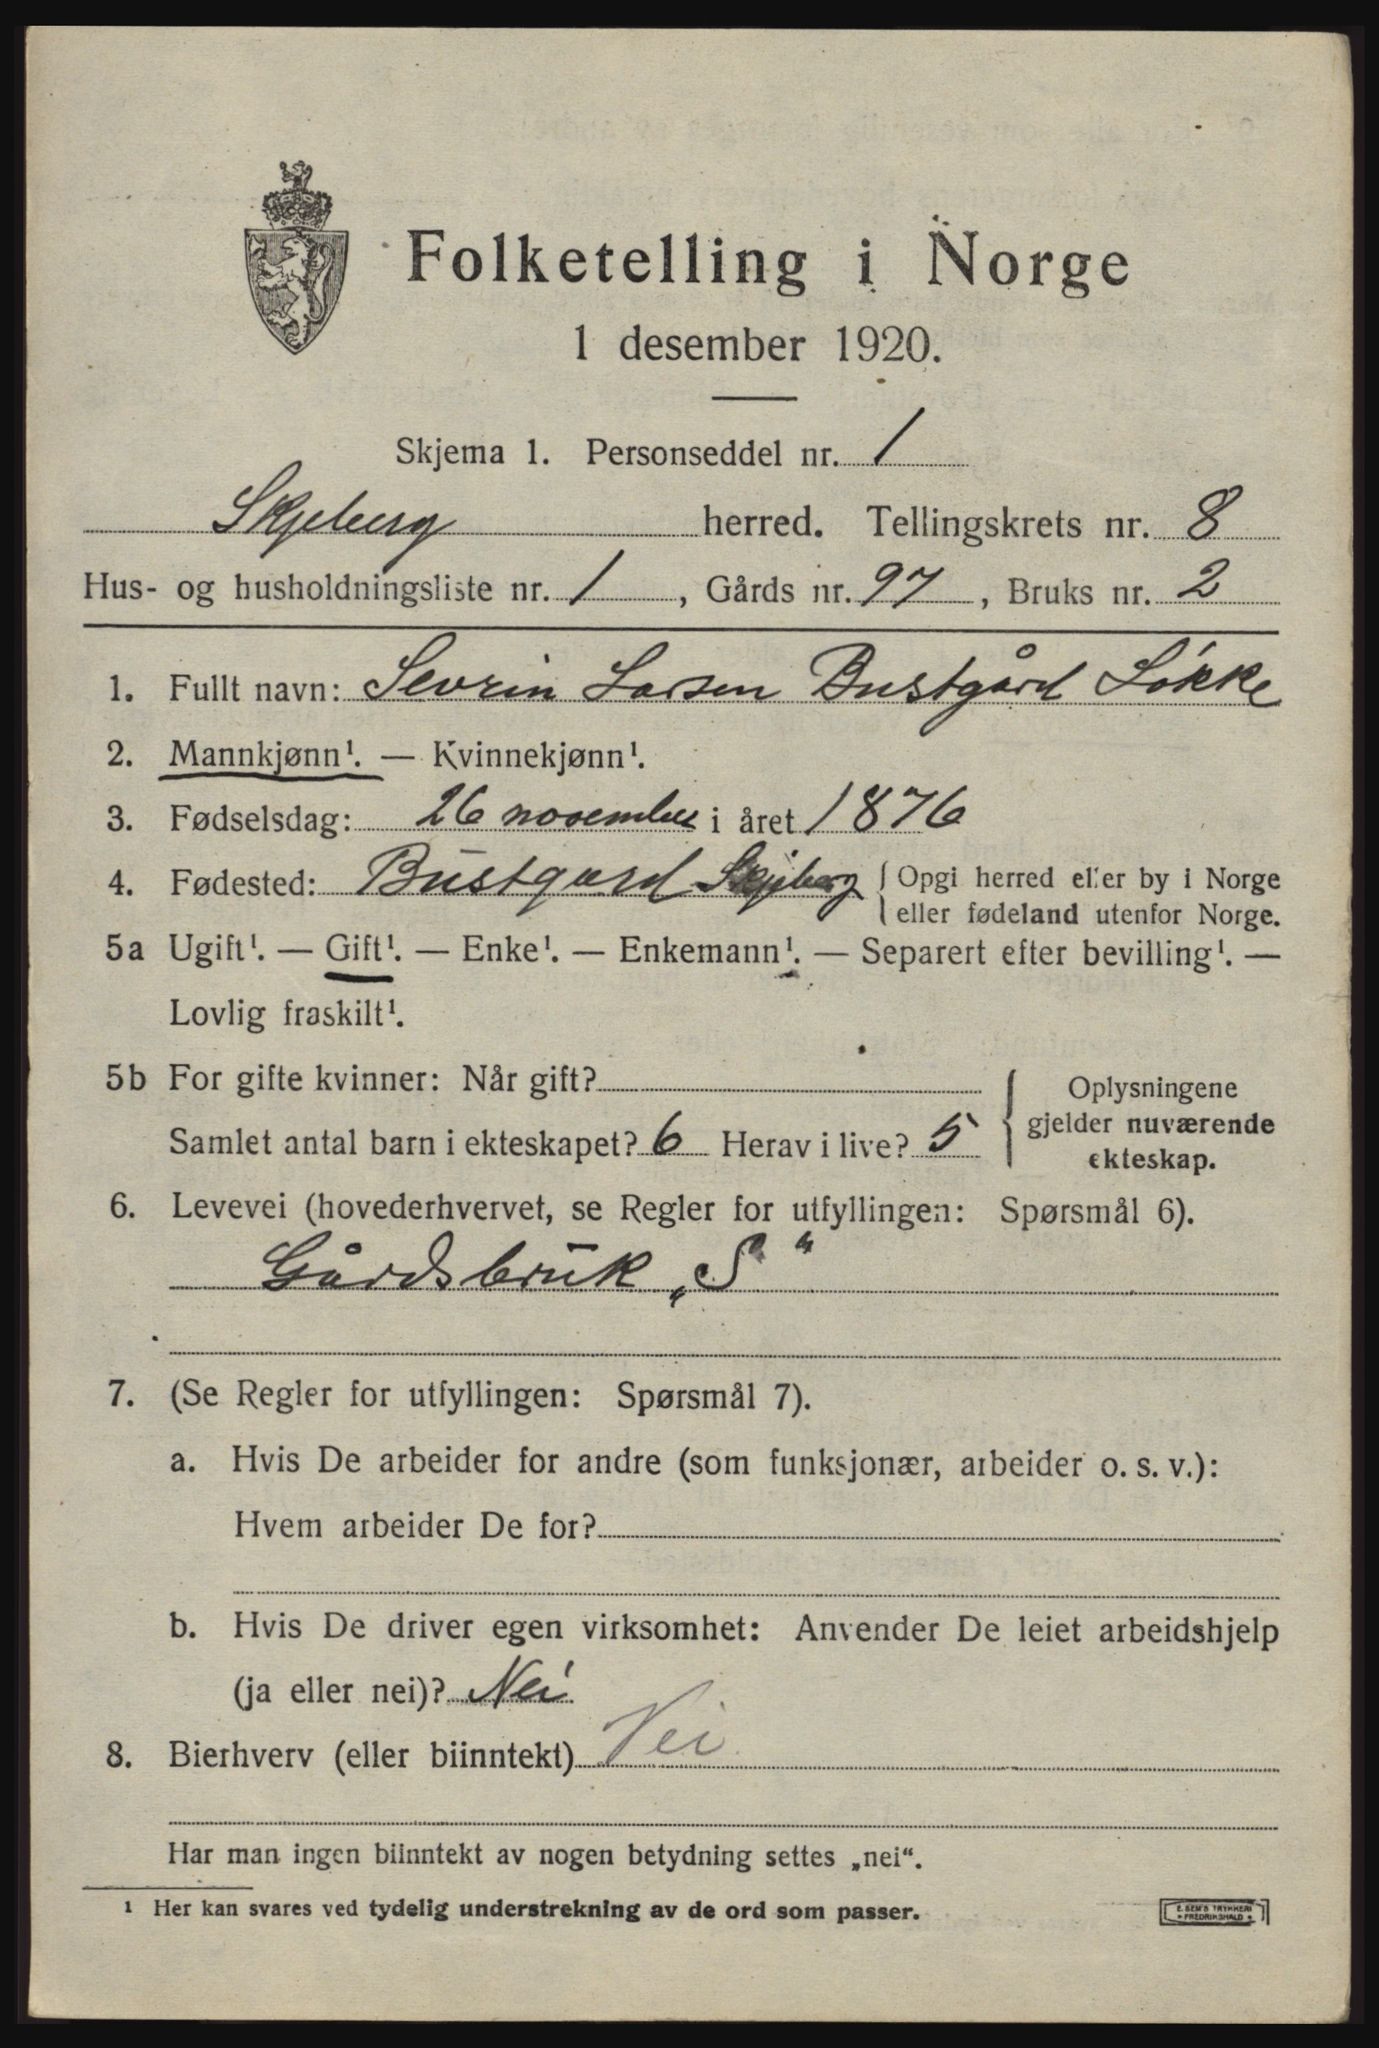 Folketelling i Norge
1 desember 1920.
Skjema 1. Personseddel nr. 1
Skjeberg herred. Tellingskrets nr. 8
Hus- og husholdningsliste nr. 1, Gårds nr. 97, Bruks nr. 2
1. Fullt navn: Sevrin Larsen Bustgård Løkke
2. Mannkjønn¹. — Kvinnekjønn¹.
3. Fødselsdag: 26 november i året 1876
4. Fødested: Bustgård Skjeberg { Opgi herred eller by i Norge
eller fødeland utenfor Norge.
5a Ugift¹. — Gift¹. — Enke¹. — Enkemann¹. — Separert efter bevilling¹. —
Lovlig fraskilt¹.
5b For gifte kvinner: Når gift?
Samlet antal barn i ekteskapet? 6 Herav i live? 5
{ Oplysningene
gjelder nuværende
ekteskap.
6. Levevei (hovederhvervet, se Regler for utfyllingen: Spørsmål 6).
Gårdsbruk „S"
7. (Se Regler for utfyllingen: Spørsmål 7).
a. Hvis De arbeider for andre (som funksjonær, arbeider o. s. v.):
Hvem arbeider De for?
b. Hvis De driver egen virksomhet: Anvender De leiet arbeidshjelp
(ja eller nei)? Nei
8. Bierhverv (eller biinntekt) Nei
Har man ingen biinntekt av nogen betydning settes „nei“.
¹ Her kan svares ved tydelig understrekning av de ord som passer.
E. SEM'S TRYKKERI
FREDRIKSHALD